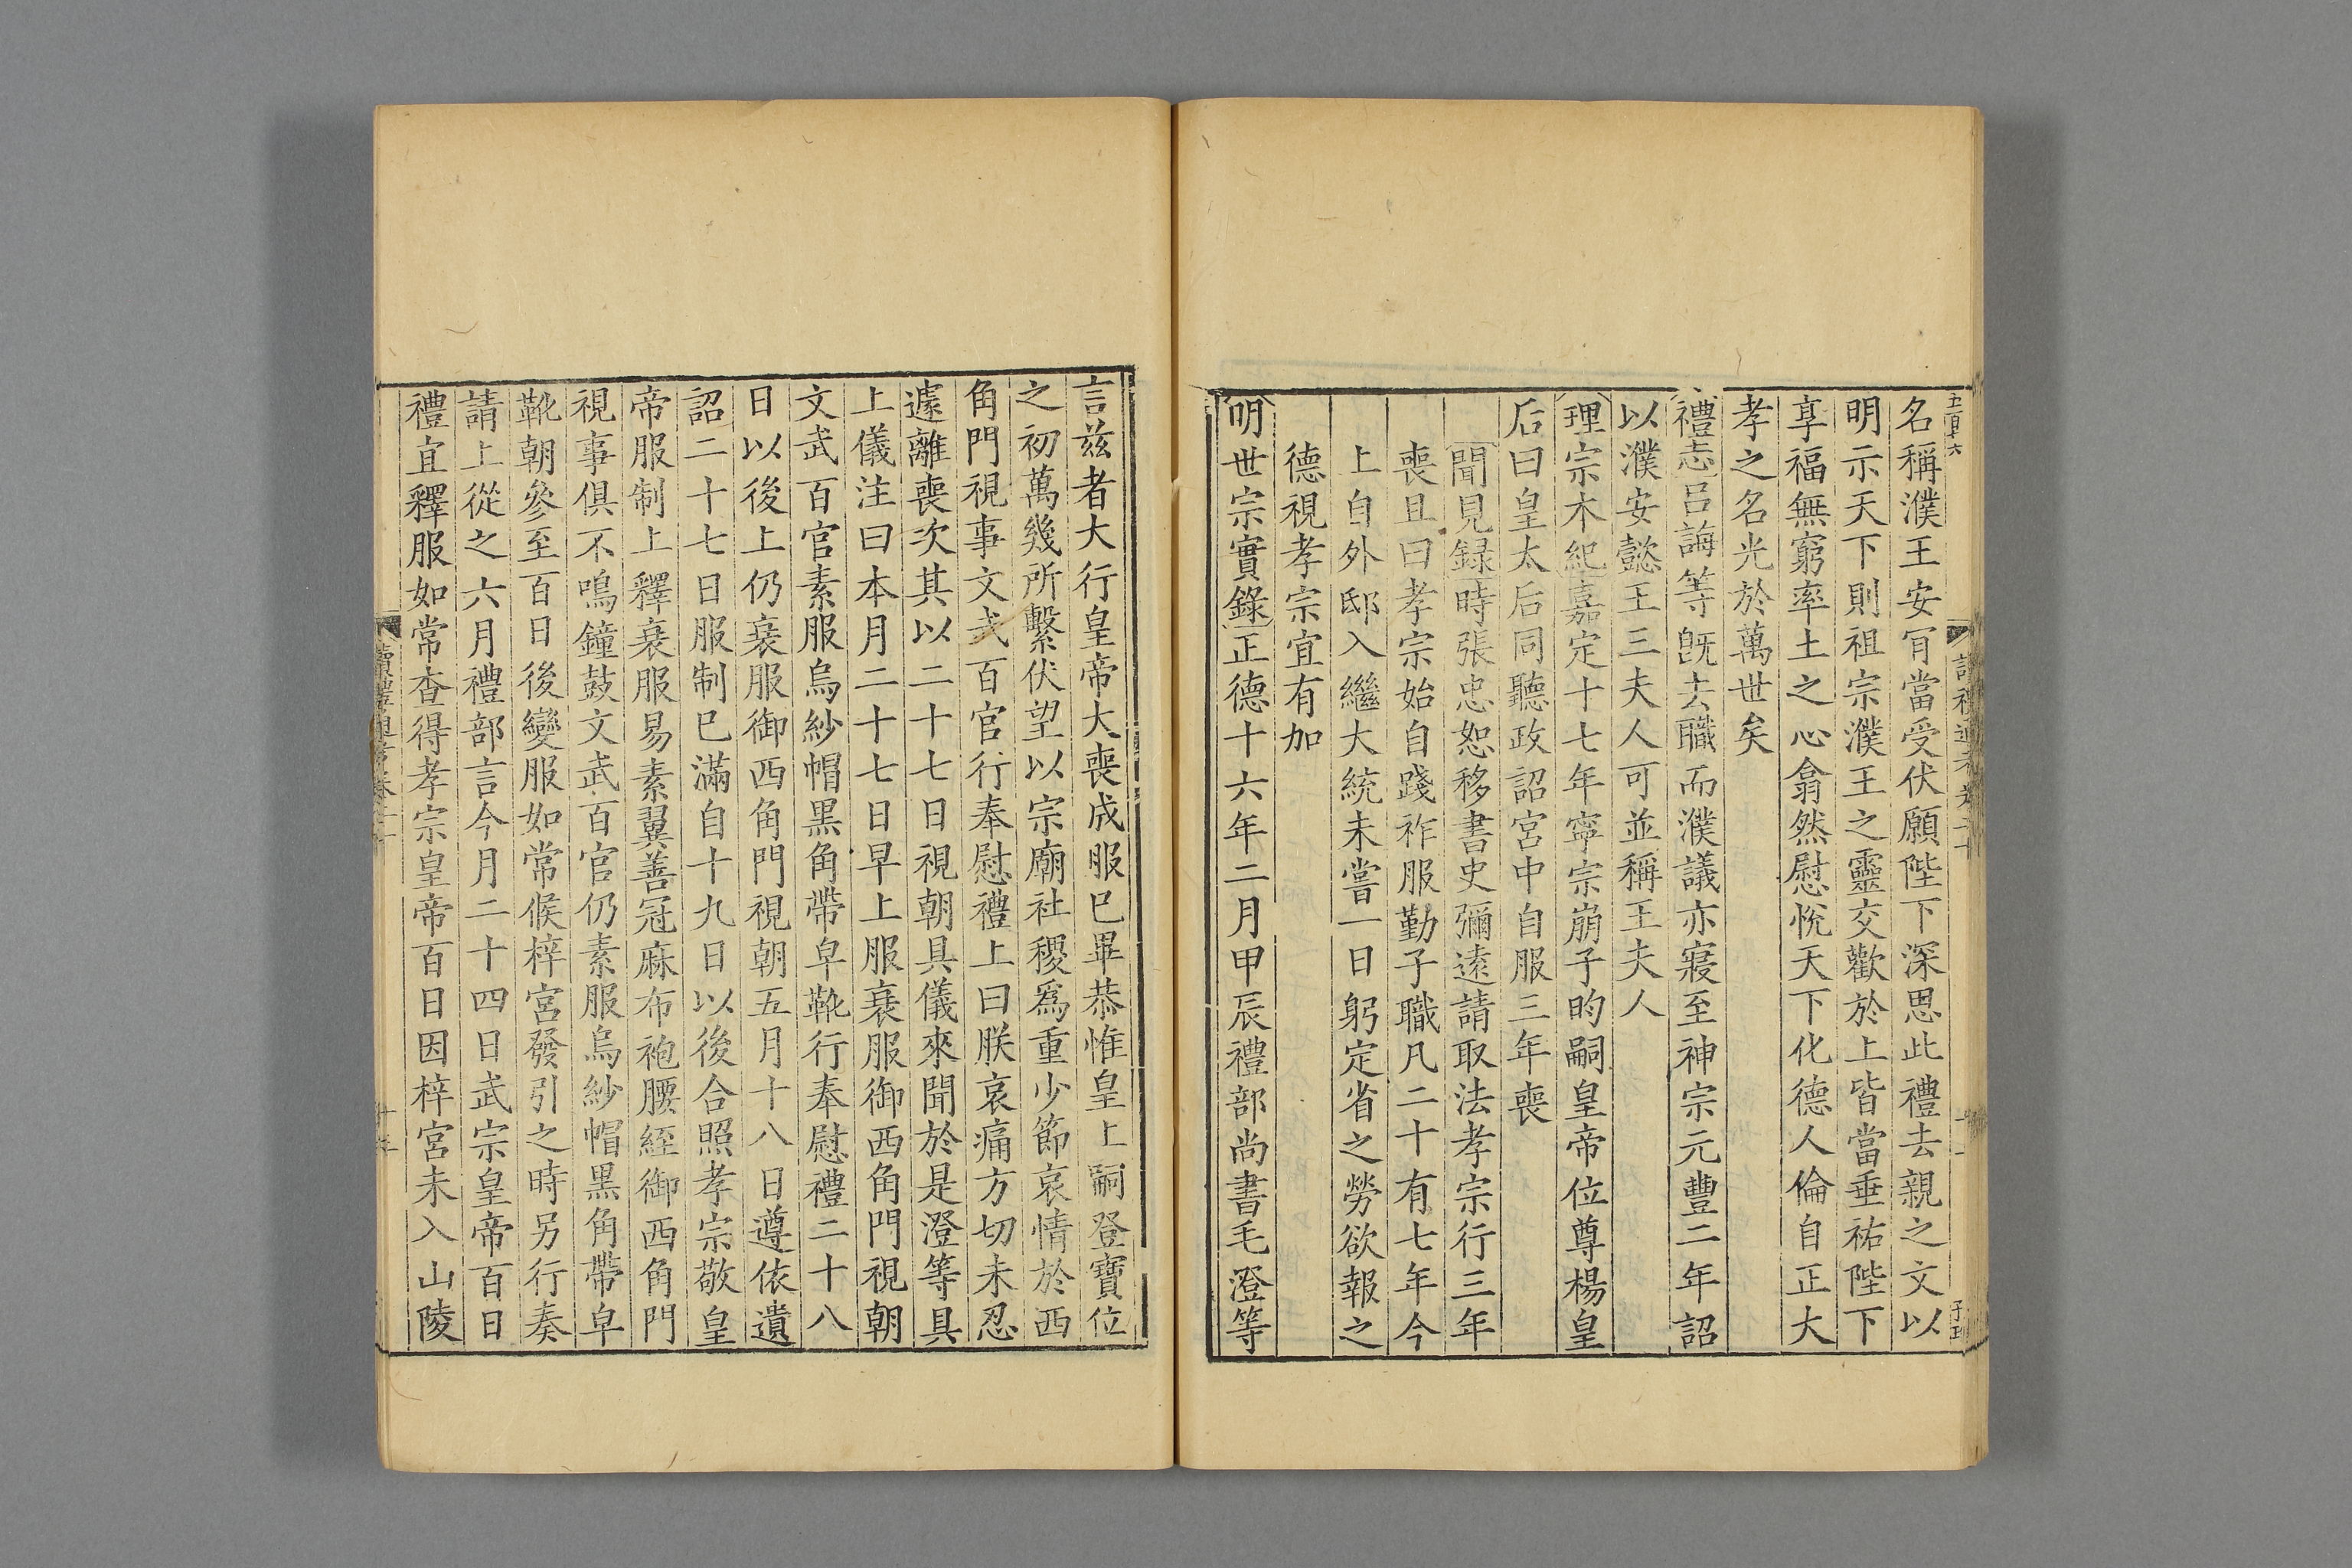 名稱濮王安肎當受伏願陛下深思此禮去親之文以
明示天下則祖宗濮王之靈交歡於上皆當垂祐陛下
享福無窮率土之心翕然慰悅天下化德人倫自正大
孝之名光於萬世矣
禮志呂誨等旣去職而濮議亦寢至神宗元豐二年詔
以濮安懿王三夫人可並稱王夫人
理宗本紀嘉定十七年寧宗崩子昀嗣皇帝位尊楊皇
后曰皇太后同聽政詔宮中自服三年喪
聞見録時張忠恕移書史彌遠請取法孝宗行三年
喪且曰孝宗始自踐祚服勤子職凡二十有七年今
上自外邸入繼大統未嘗一日躬定省之勞欲報之
德視孝宗宜有加
明世宗實錄正德十六年二月甲辰禮部尚書毛澄等
言兹者大行皇帝大喪成服已畢恭惟皇上嗣登寶位
之初萬幾所繫伏望以宗廟社稷爲重少節哀情於西
角門視事文武百官行奉慰禮上曰朕哀痛方切未忍
遽離喪次其以二十七日視朝具儀來聞於是澄等具
上儀注曰本月二十七日早上服衰服御西角門視朝
文武百官素服烏紗帽黑角帶皁靴行奉慰禮二十八
日以後上仍衰服御西角門視朝五月十八日遵依遺
詔二十七日服制已滿自十九日以後合照孝宗敬皇
帝服制上釋衰服易素翼善冠麻布袍腰絰御西角門
視事俱不鳴鐘鼓文武百官仍素服烏紗帽黑角帶皁
靴朝參至百日後變服如常候梓宮發引之時另行奏
請上從之六月禮部言今月二十四日武宗皇帝百日
禮宜釋服如常查得孝宗皇帝百日因梓宮未入山陵